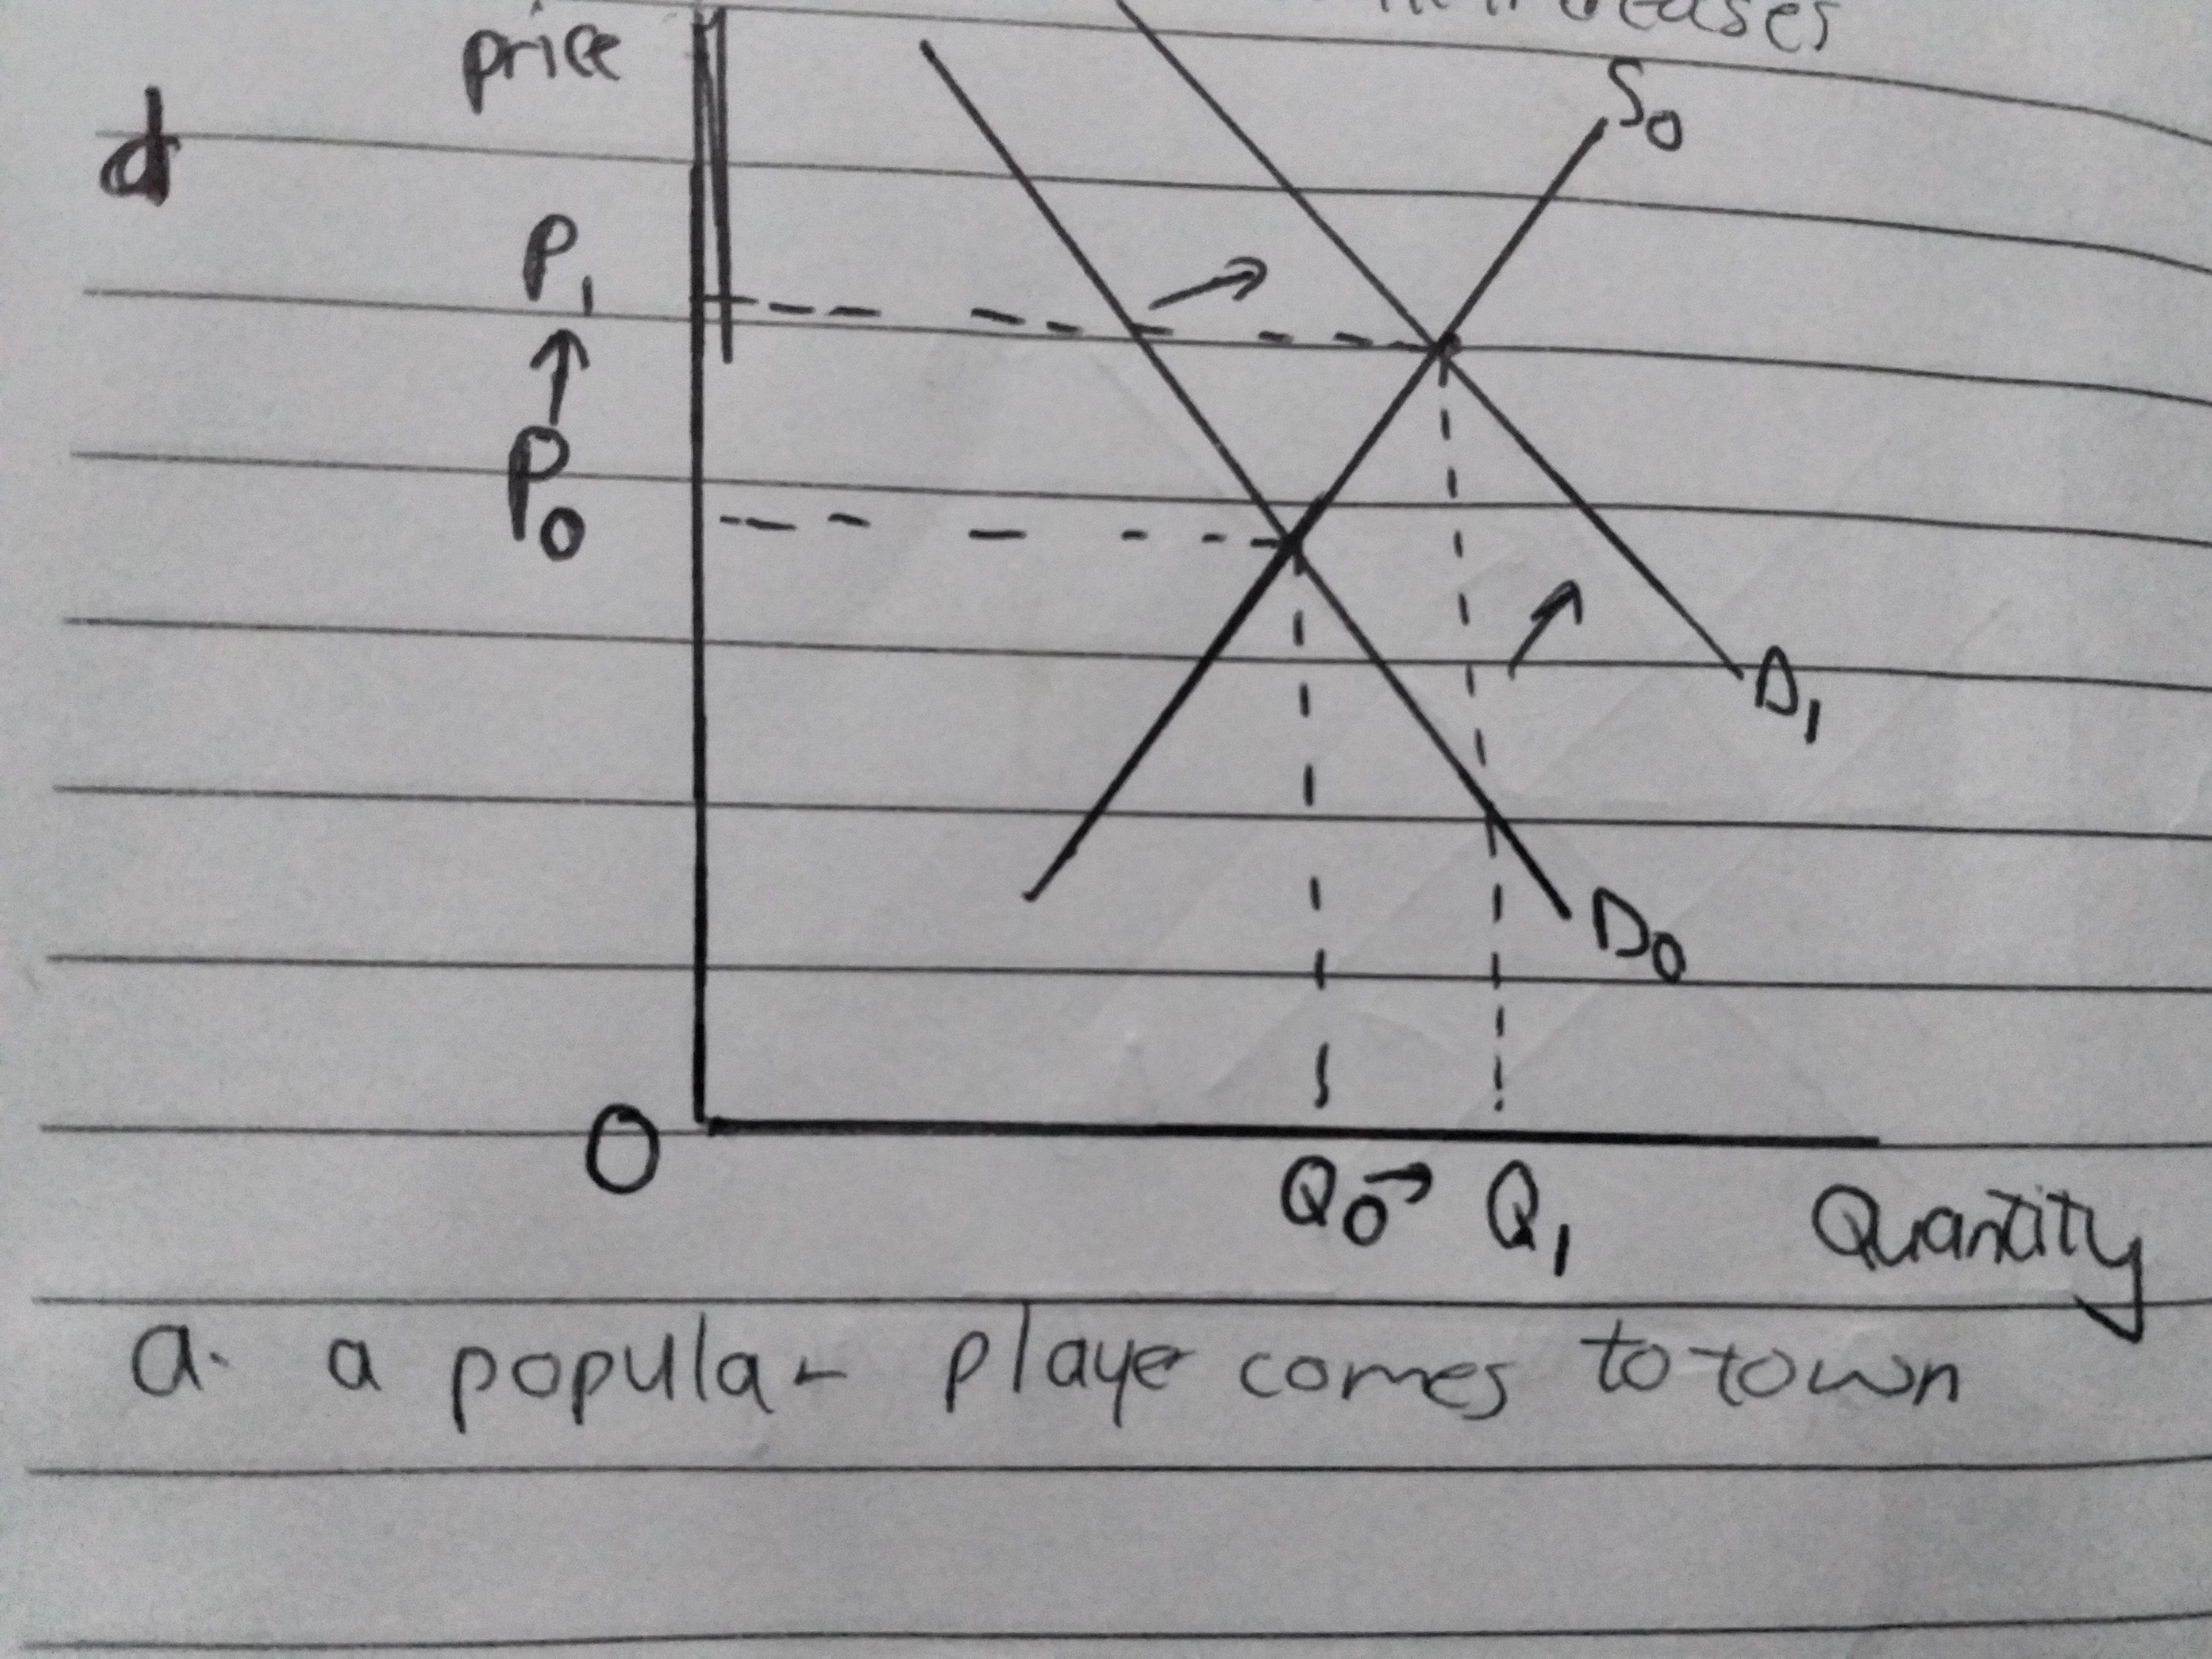 increases
price
d
S0
P1
P0
D1
D0
O
Q0 → Q1
Quantity
a. a popular player comes to town